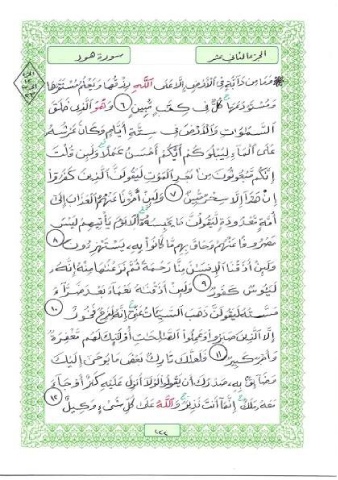 الجزء الثاني عشر
سورة هود
وَمَا مِن دَآبَّةٍ فِى ٱلْأَرْضِ إِلَّا عَلَى ٱللَّهِ رِزْقُهَا وَيَعْلَمُ مُسْتَقَرَّهَا
وَمُسْتَوْدَعَهَا كُلٌّ فِى كِتَٰبٍ مُّبِينٍ ٦ وَهُوَ ٱلَّذِى خَلَقَ
ٱلسَّمَٰوَٰتِ وَٱلْأَرْضَ فِى سِتَّةِ أَيَّامٍ وَكَانَ عَرْشُهُ
عَلَى ٱلْمَآءِ لِيَبْلُوَكُمْ أَيُّكُمْ أَحْسَنُ عَمَلًا وَلَئِن قُلْتَ
إِنَّكُم مَّبْعُوثُونَ مِن بَعْدِ ٱلْمَوْتِ لَيَقُولَنَّ ٱلَّذِينَ كَفَرُوٓا۟
إِنْ هَٰذَآ إِلَّا سِحْرٌ مُّبِينٌ ٧ وَلَئِنْ أَخَّرْنَا عَنْهُمُ ٱلْعَذَابَ إِلَىٰٓ
أُمَّةٍ مَّعْدُودَةٍ لَّيَقُولُنَّ مَا يَحْبِسُهُۥٓ أَلَا يَوْمَ يَأْتِيهِمْ لَيْسَ
مَصْرُوفًا عَنْهُمْ وَحَاقَ بِهِم مَّا كَانُوا۟ بِهِۦ يَسْتَهْزِءُونَ ٨
وَلَئِنْ أَذَقْنَا ٱلْإِنسَٰنَ مِنَّا رَحْمَةً ثُمَّ نَزَعْنَٰهَا مِنْهُ إِنَّهُۥ
لَيَـُٔوسٌ كَفُورٌ ٩ وَلَئِنْ أَذَقْنَٰهُ نَعْمَآءَ بَعْدَ ضَرَّآءَ
مَسَّتْهُ لَيَقُولَنَّ ذَهَبَ ٱلسَّيِّـَٔاتُ عَنِّىٓ إِنَّهُۥ لَفَرِحٌ فَخُورٌ ١٠
إِلَّا ٱلَّذِينَ صَبَرُوا۟ وَعَمِلُوا۟ ٱلصَّٰلِحَٰتِ أُو۟لَٰٓئِكَ لَهُم مَّغْفِرَةٌ
وَأَجْرٌ كَبِيرٌ ١١ فَلَعَلَّكَ تَارِكٌۢ بَعْضَ مَا يُوحَىٰٓ إِلَيْكَ
وَضَآئِقٌۢ بِهِۦ صَدْرُكَ أَن يَقُولُوا۟ لَوْلَآ أُنزِلَ عَلَيْهِ كَنزٌ أَوْ جَآءَ
مَعَهُۥ مَلَكٌ إِنَّمَآ أَنتَ نَذِيرٌ وَٱللَّهُ عَلَىٰ كُلِّ شَىْءٍ وَكِيلٌ ١٢
٢٢٢